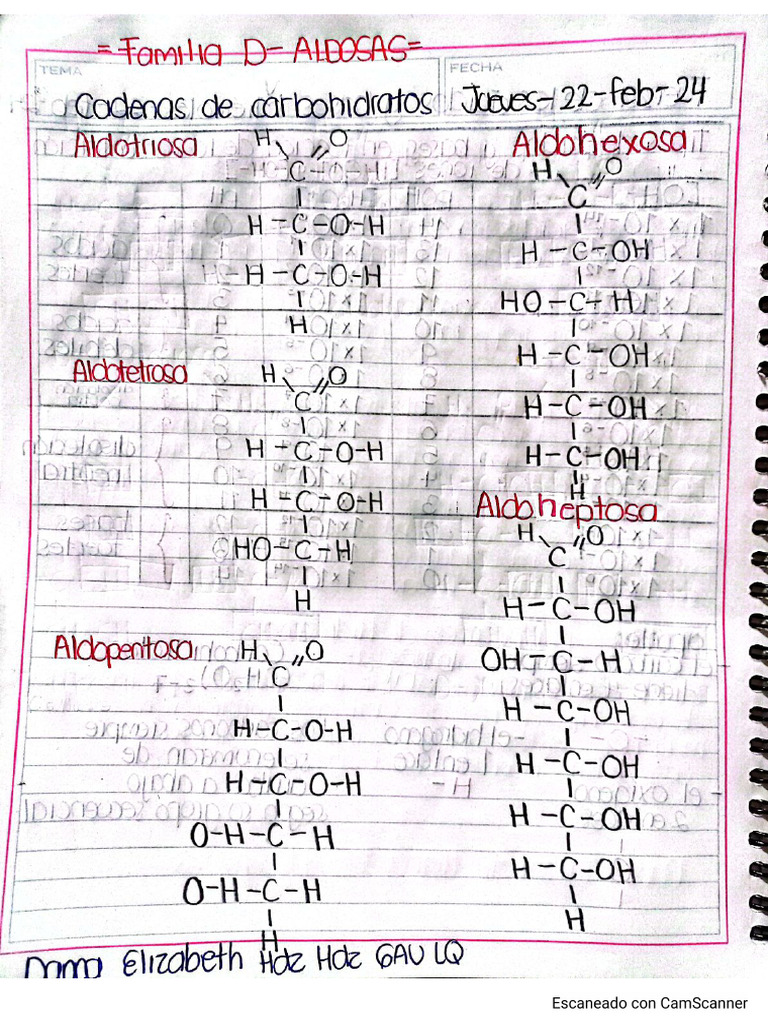 = Familia D- ALDOSAS=
TEMA
FECHA
Cadenas de carbohidratos
Jueves-22-feb-24
Aldotriosa
H O
C
H-C-O-H
H-C-O-H
H
Aldotetrosa
H O
C
H-C-O-H
H-C-O-H
HO-C-H
H
Aldopentosa
H O
C
H-C-O-H
H-C-O-H
O-H-C-H
O-H-C-H
H
Aldohexosa
H O
C
H-C-OH
HO-C-H
H-C-OH
H-C-OH
H-C-OH
H
Aldoheptosa
H O
C
H-C-OH
OH-C-H
H-C-OH
H-C-OH
H-C-OH
H-C-OH
H
Elizabeth Hdz Hdz 6AV LQ
Escaneado con CamScanner